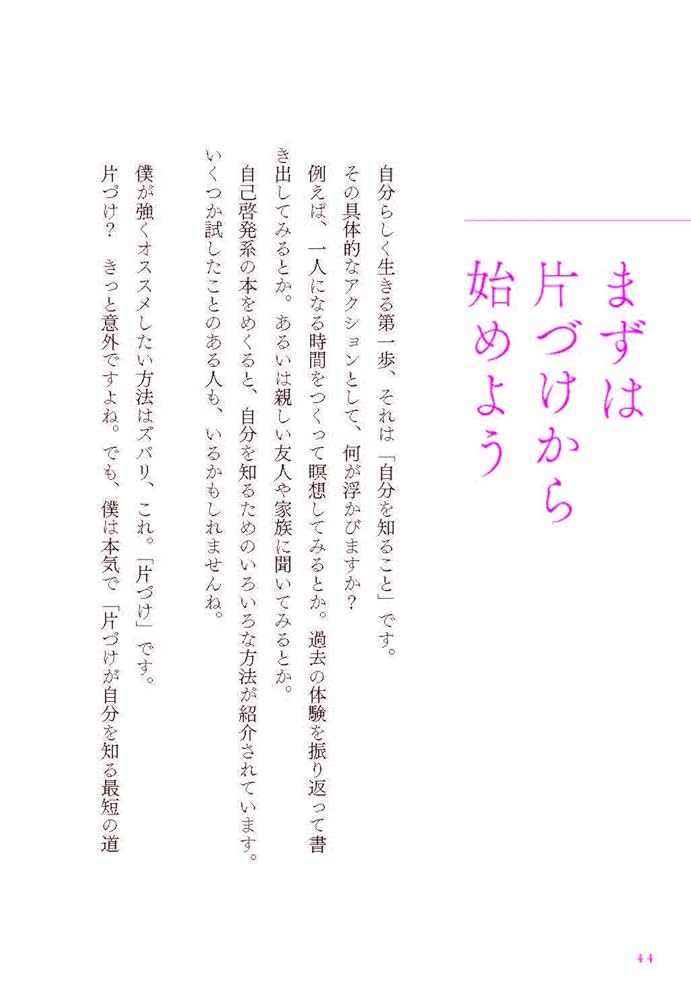 まずは
片づけから
始めよう
自分らしく生きる第一歩、それは「自分を知ること」です。
その具体的なアクションとして、何が浮かびますか？
例えば、一人になる時間をつくって瞑想してみるとか。過去の体験を振り返って書
き出してみるとか。あるいは親しい友人や家族に聞いてみるとか。
自己啓発系の本をめくると、自分を知るためのいろいろな方法が紹介されています。
いくつか試したことのある人も、いるかもしれませんね。
僕が強くオススメしたい方法はズバリ、これ。「片づけ」です。
片づけ？　きっと意外ですよね。でも、僕は本気で「片づけが自分を知る最短の道
44